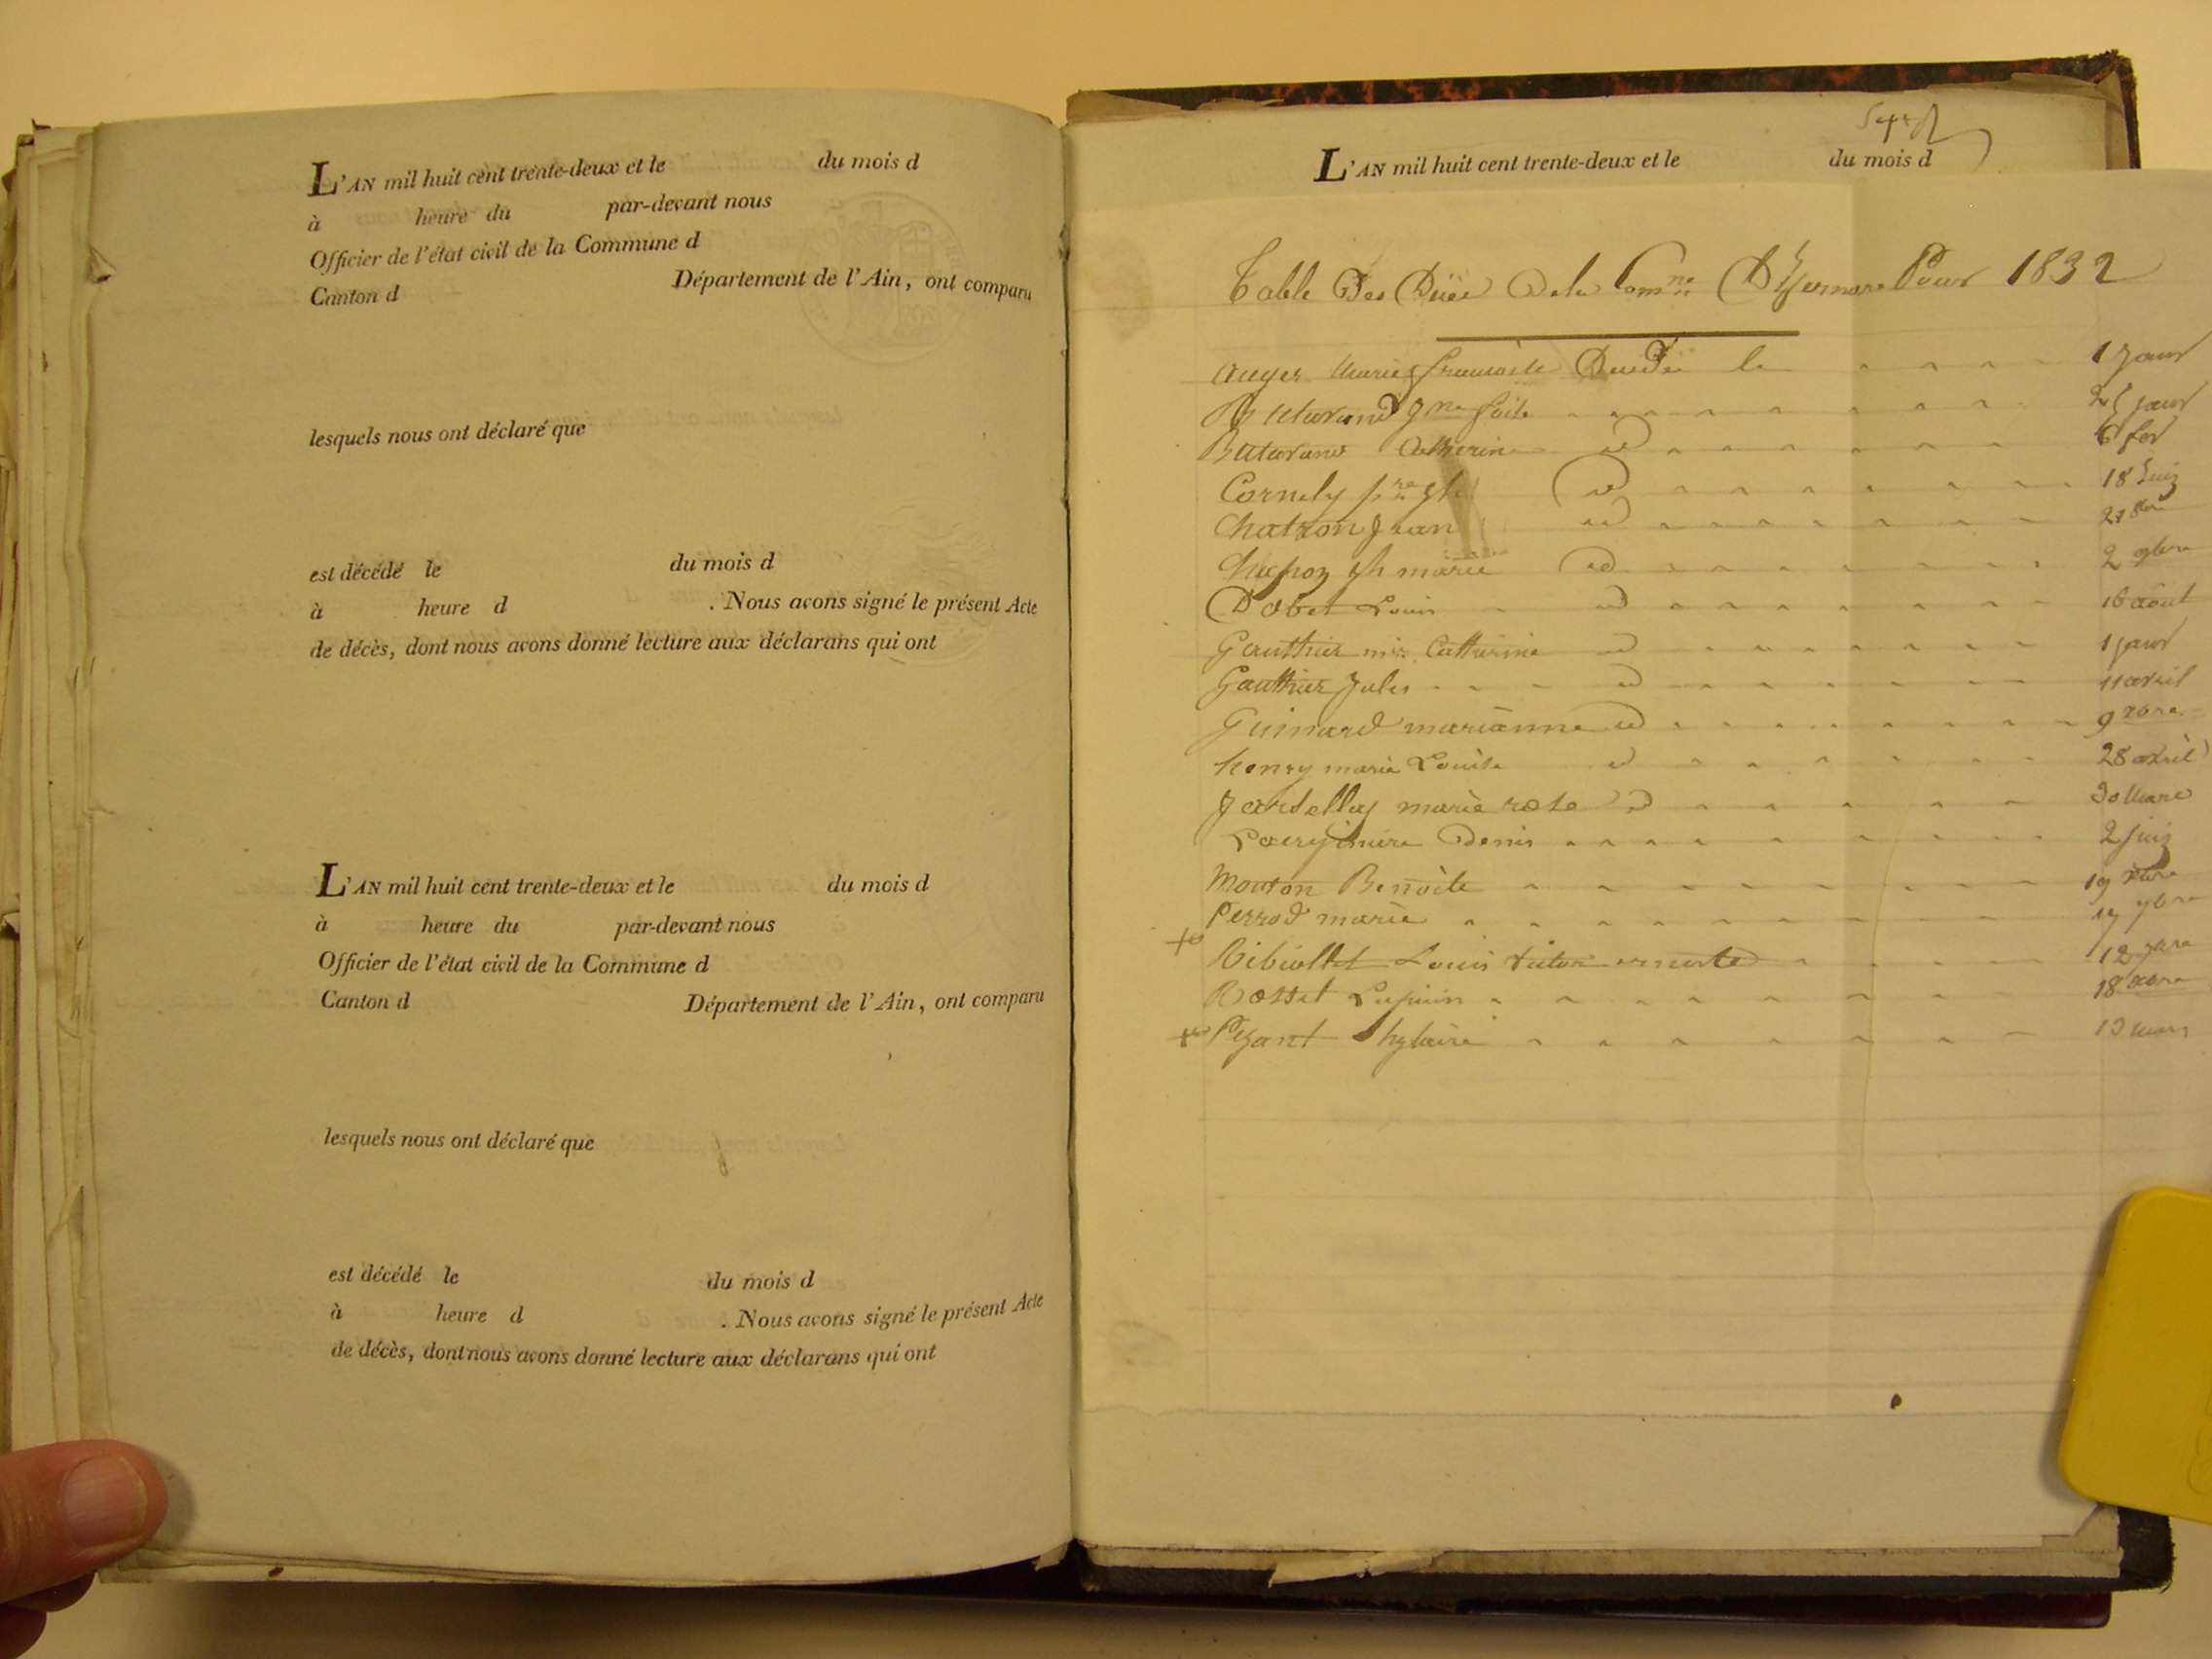 L'AN mil huit cent trente-deux et le du mois d
à heure du par-devant nous
Officier de l'état civil de la Commune d
Canton d Département de l'Ain, ont comparu
lesquels nous ont déclaré que
est décédé le du mois d
à heure d . Nous avons signé le présent Acte
de décès, dont nous avons donné lecture aux déclarans qui ont
L'AN mil huit cent trente-deux et le du mois d
à heure du par-devant nous
Officier de l'état civil de la Commune d
Canton d Département de l'Ain, ont comparu
lesquels nous ont déclaré que
est décédé le du mois d
à heure d . Nous avons signé le présent Acte
de décès, dont nous avons donné lecture aux déclarans qui ont
L'AN mil huit cent trente-deux et le du mois d
Table Des De la Comne Pour 1832
auger Marie françoise le 1 janv
janv
Catherine id 6 fev
Cornely id 18 juin
Chatron jean id
marie id 2 9bre
Dobet Louis id 16 aout
Gauthier Catherine id 1 janv
Gauthier jules id 11 avril
Guinard marianne id 9 xbre
henry marie Louise id 28 avril
jardellay marie rose id 30 Mars
Denis 2 juin
Mouton Benoite 19
Perrod marie 17 9bre
Louis 12
Rosset 18 xbre
Pysant hylaire 13 mars